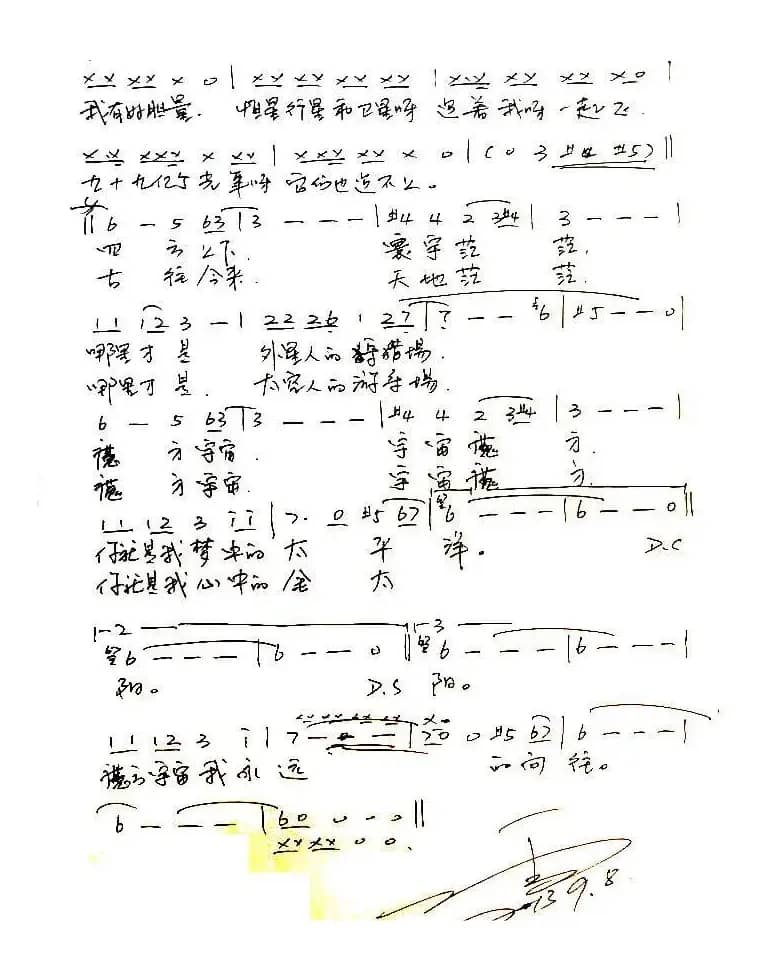 x x x x x 0 | x x x x x x x x | x x x x x x x 0 |
我有好胆量. 恒星行星和卫星呀 追着我呀一起飞.
x x x x x x x x | x x x x x x 0 | ( 0 3 #4 #5 ) ||
九十九亿个光年呀 它们也追不上。
|| 6 — 5 63 | 3 - - - | #4 4 2 3#4 | 3 - - - |
四 方上下. 寰宇茫 茫.
古 往今来. 天地茫 茫.
11 12 3 — | 22 26 1 27 | 7 - - #6 | #5 - - 0 |
哪里才是 外星人的 猎場
哪里才是. 太空人的游乐場.
6 — 5 63 | 3 - - - | #4 4 2 3#4 | 3 - - - |
魔 方宇宙. 宇宙魔 方.
魔 方宇宙. 宇宙魔 方.
11 12 3 i i | 7. 0 #5 67 | 6 - - - | 6 - - 0 ||
你就是我梦中的太 平 洋。 D.C
你就是我心中的金 太
1-2 1-3
6 - - - | 6 - - 0 || 6 - - - | 6 - - - |
阳。 D.S 阳。
x x x x x x x x x 0
11 12 3 i | 7 - - - | 70 0 #5 67 | 6 - - - |
魔方宇宙我永远 的向往。
6 - - - | 60 0 - 0 ||
x x x x 0 0.
13 9.8